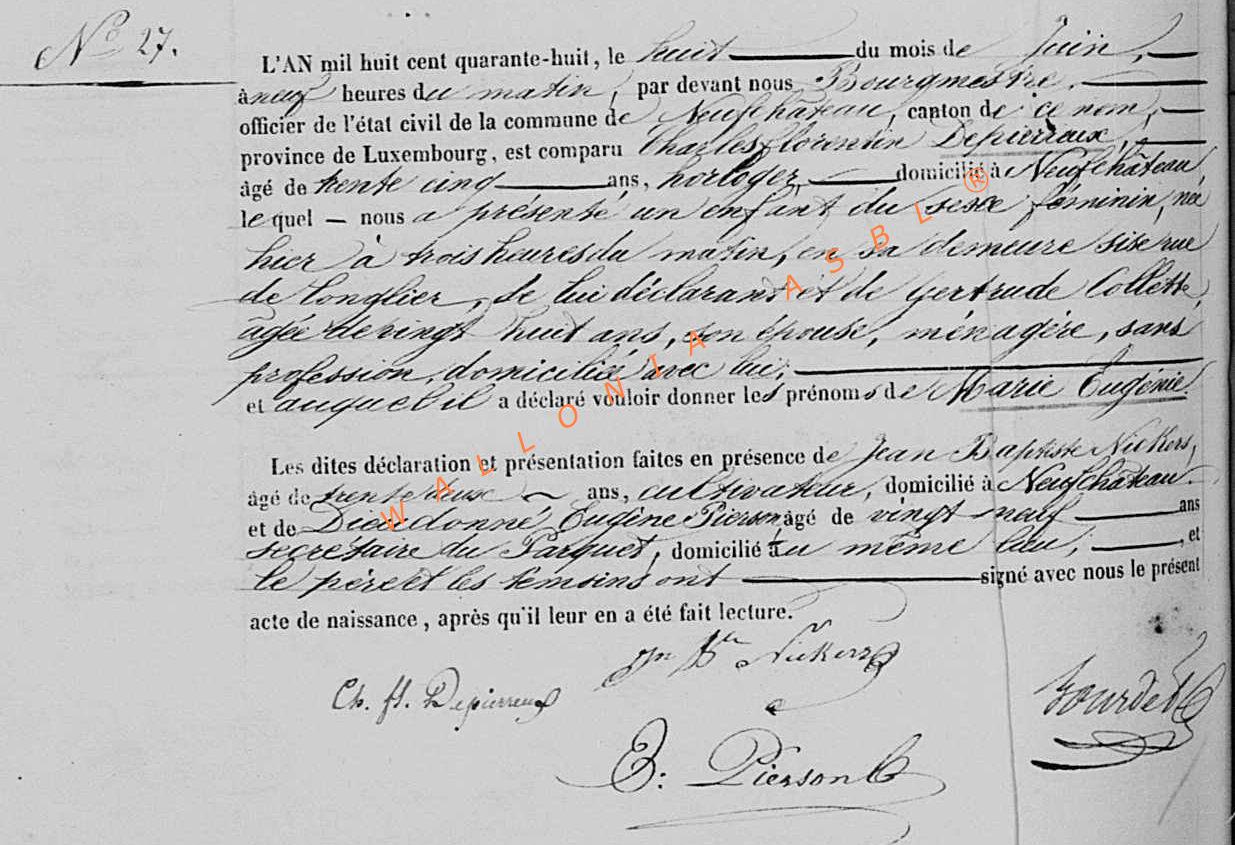 N° 27.
L'AN mil huit cent quarante-huit, le huit du mois de Juin,
à neuf heures du matin, par devant nous Bourgmestre,
officier de l'état civil de la commune de Neufchâteau, canton de ce nom,
province de Luxembourg, est comparu Charles florentin Depierreux,
âgé de trente cinq ans, horloger, domicilié à Neufchâteau,
le quel — nous a présenté un enfant du sexe féminin, né
hier à trois heures du matin, en sa demeure sise rue
de Longlier, de lui déclarant et de Gertrude Collette,
âgée de vingt huit ans, son épouse, ménagère, sans
profession, domiciliée avec lui,
et auquel il a déclaré vouloir donner les prénoms de Marie Eugénie.
Les dites déclaration et présentation faites en présence de Jean Baptiste Nickers,
âgé de trente deux ans, cultivateur, domicilié à Neufchâteau.
et de Dieudonné Eugène Pierson âgé de vingt neuf ans
secrétaire du Parquet, domicilié au même lieu, et
le père et les témoins ont signé avec nous le présent
acte de naissance, après qu'il leur en a été fait lecture.
Jn Bte Nickers
Ch. fl. Depierreux
E: Pierson
WALLONIA ASBL ®